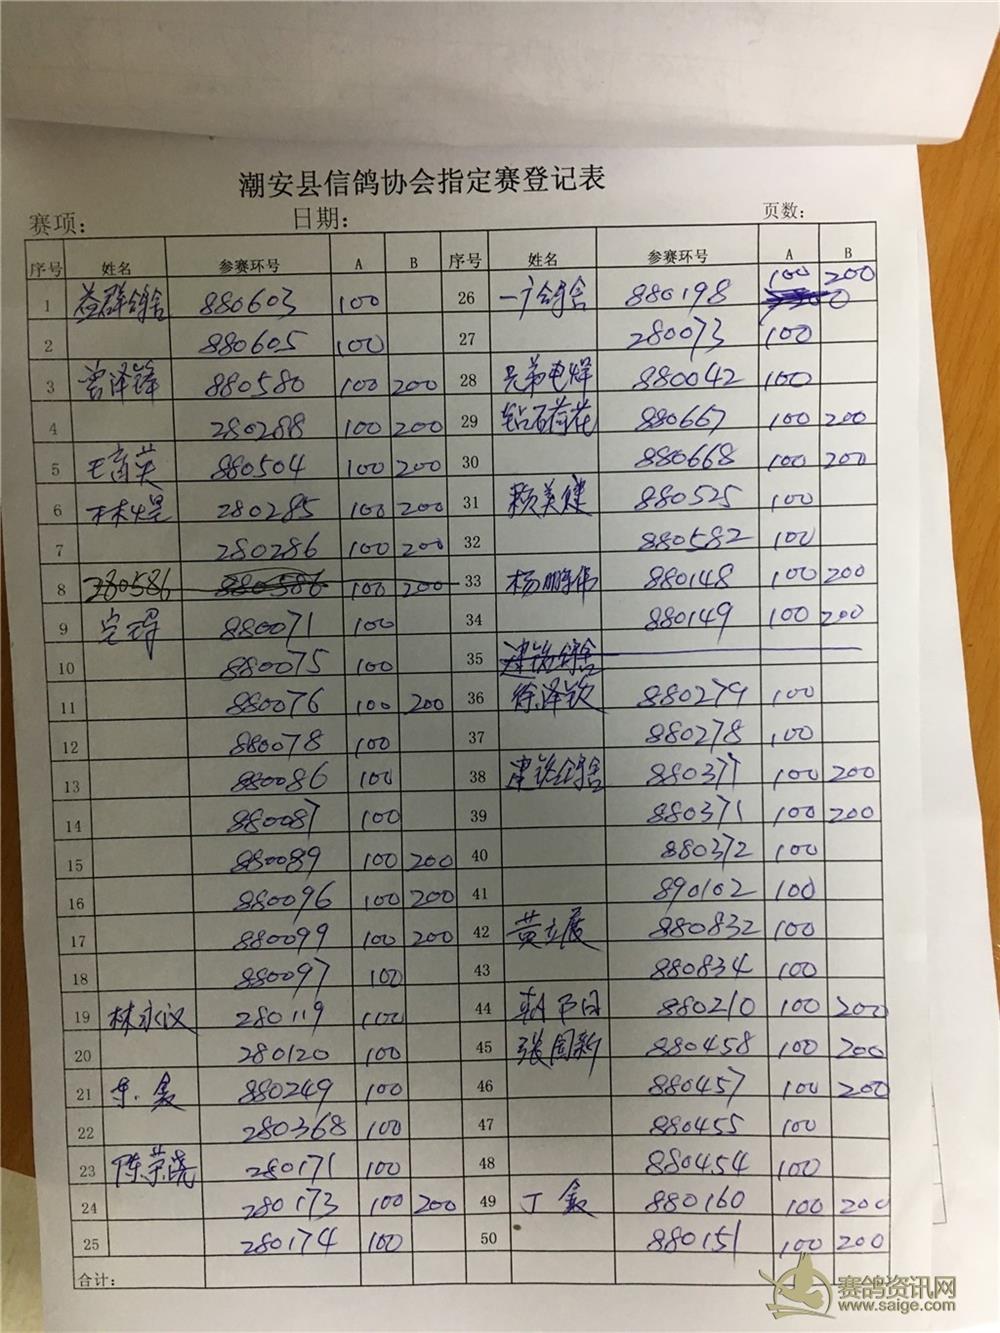 潮安县信鸽协会指定赛登记表
赛项： 日期： 页数：
序号 姓名 参赛环号 A B 序号 姓名 参赛环号 A B
1 益群鸽舍 880603 100 26 一广鸽舍 880198 100 200
2 880605 100 27 280073 100
3 曾泽锋 880580 100 200 28 兄弟电焊 880042 100
4 280288 100 200 29 钻石荷花 880667 100 200
5 王育英 880504 100 200 30 880668 100 200
6 林焜 280285 100 200 31 赖美健 880525 100
7 280286 100 200 32 880582 100
8 280586 880586 100 200 33 杨鹏伟 880148 100 200
9 880071 100 34 880149 100 200
10 880075 100 35 建钦鸽舍
11 880076 100 200 36 徐泽钦 880279 100
12 880078 100 37 880278 100
13 880086 100 38 建钦鸽舍 880377 100 200
14 880087 100 39 880371 100 200
15 880089 100 200 40 880372 100
16 880096 100 200 41 890102 100
17 880099 100 200 42 黄立展 880832 100
18 880097 100 43 880834 100
19 林永汉 280119 100 44 880210 100 200
20 280120 100 45 张周新 880458 100 200
21 880249 100 46 880457 100 200
22 280368 100 47 880455 100
23 陈荣晓 280171 100 48 880454 100
24 280173 100 200 49 880160 100 200
25 280174 100 50 880151 100 200
合计：
赛鸽资讯网
www.saige.com